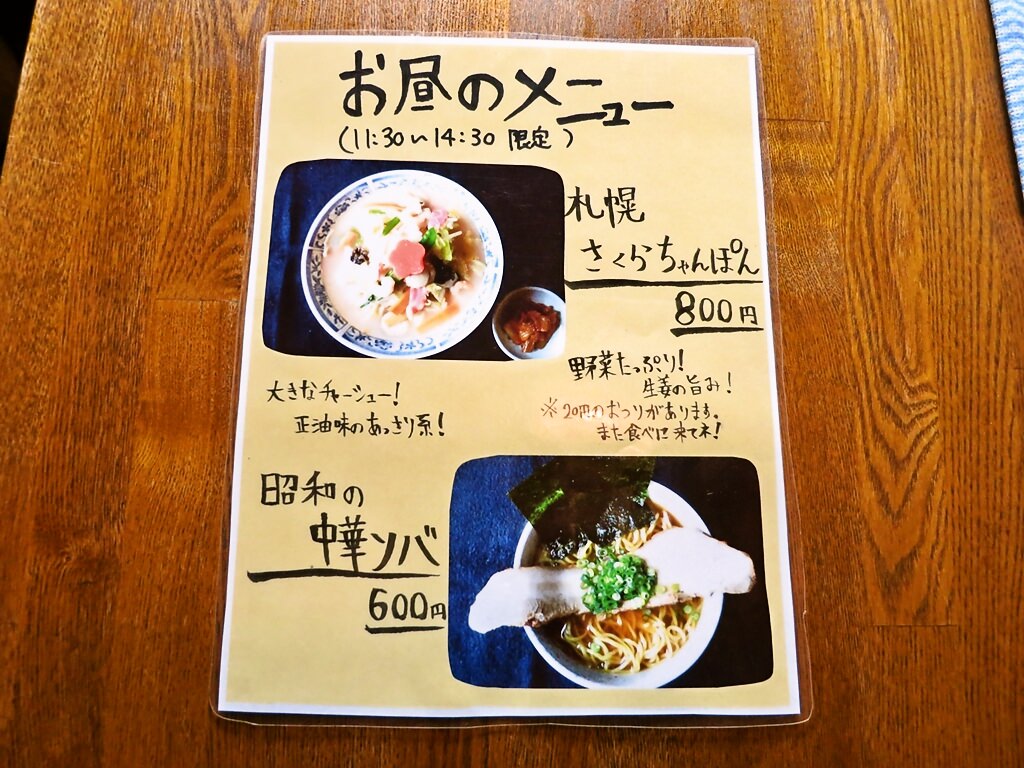 お昼のメニュー
(11:30〜14:30 限定)
札幌
さくらちゃんぽん
800円
野菜たっぷり!
生姜の旨み!
※20円のおつりがあります。
また食べに来てネ!
大きなチャーシュー!
正油味のあっさり系!
昭和の
中華ソバ
600円